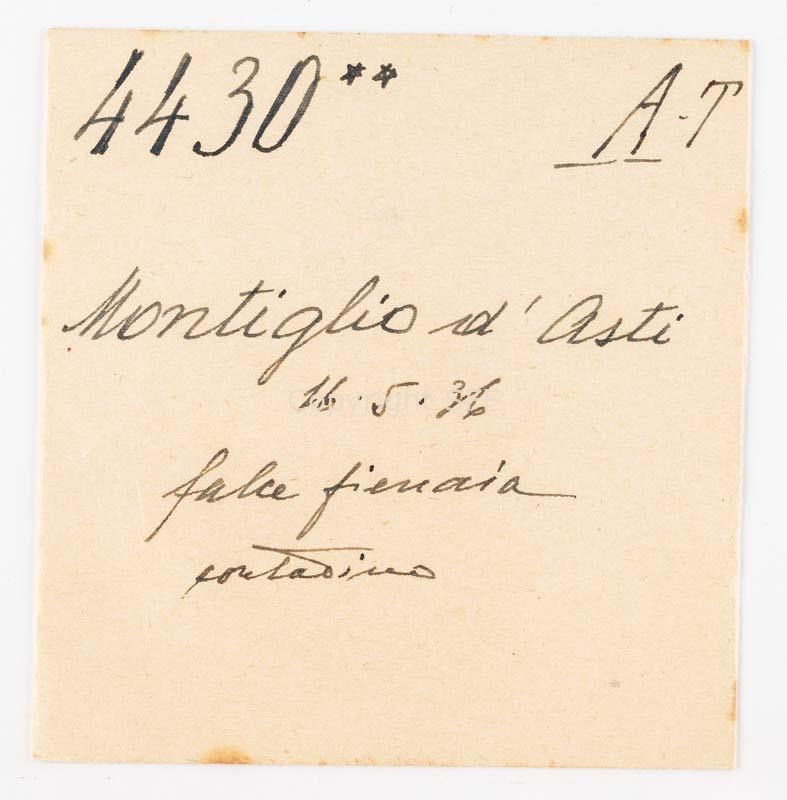 4430** A-T
Montiglio d'Asti
16.5.36
falce fienaia
contadino